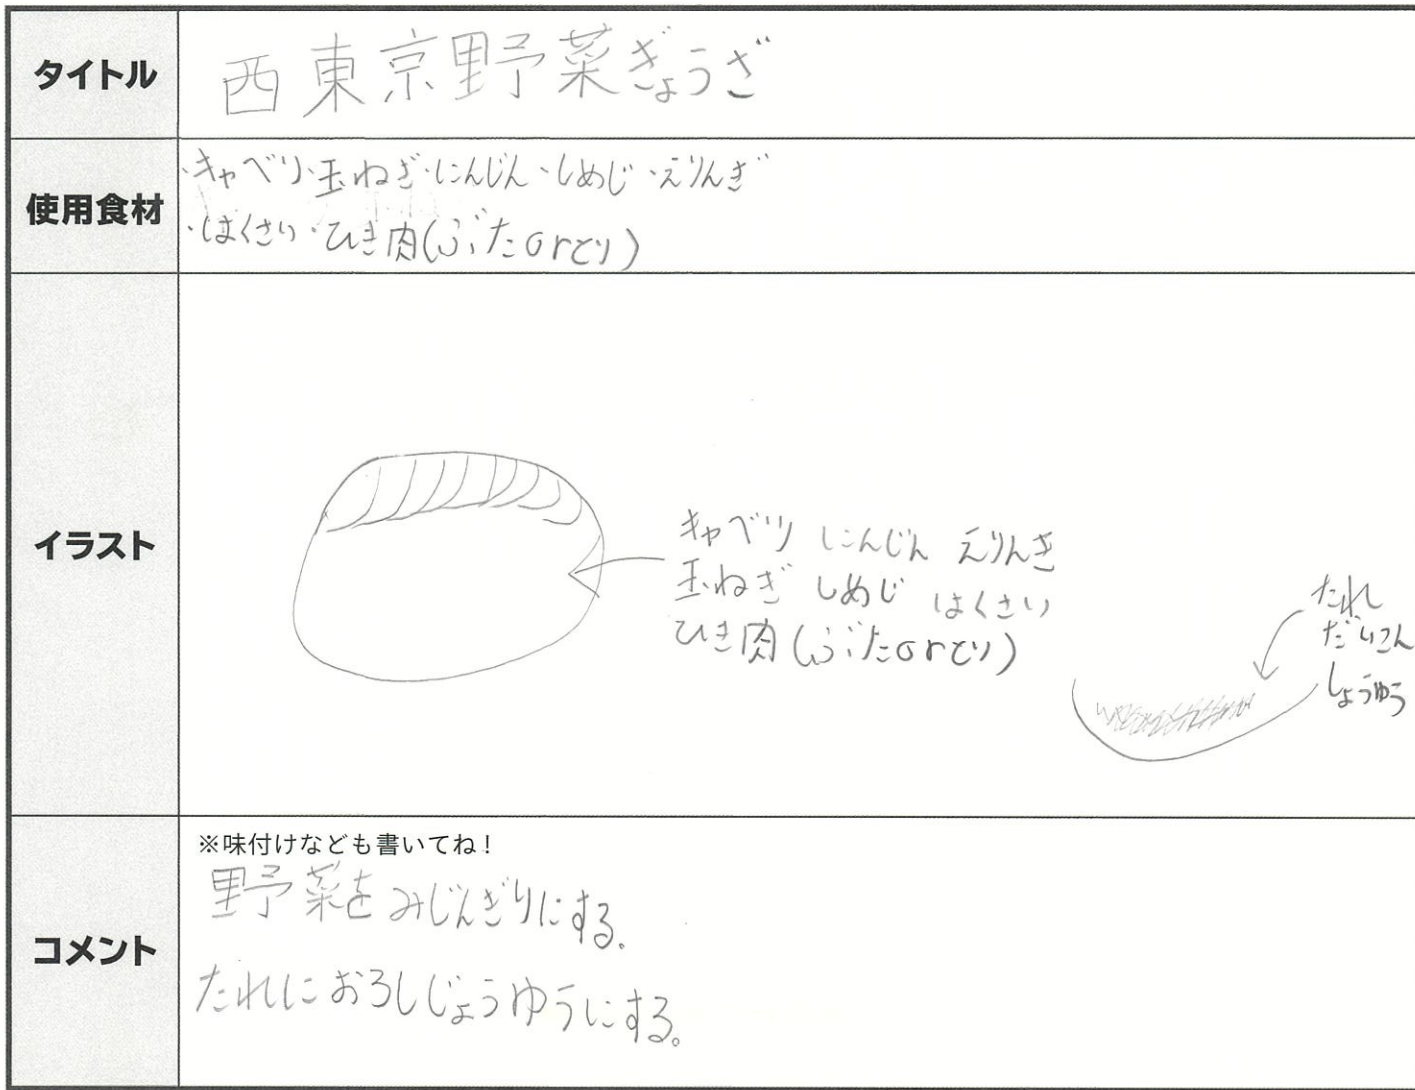 タイトル
西東京野菜ぎょうざ
使用食材
・キャベツ・玉ねぎ・にんじん・しめじ・えりんぎ
・はくさい・ひき肉(ぶたorとり)
イラスト
キャベツ にんじん えりんぎ
玉ねぎ しめじ はくさい
ひき肉(ぶたorとり)
たれ
だいこん
しょうゆう
コメント
※味付けなども書いてね!
野菜をみじんぎりにする。
たれにおろしじょうゆうにする。